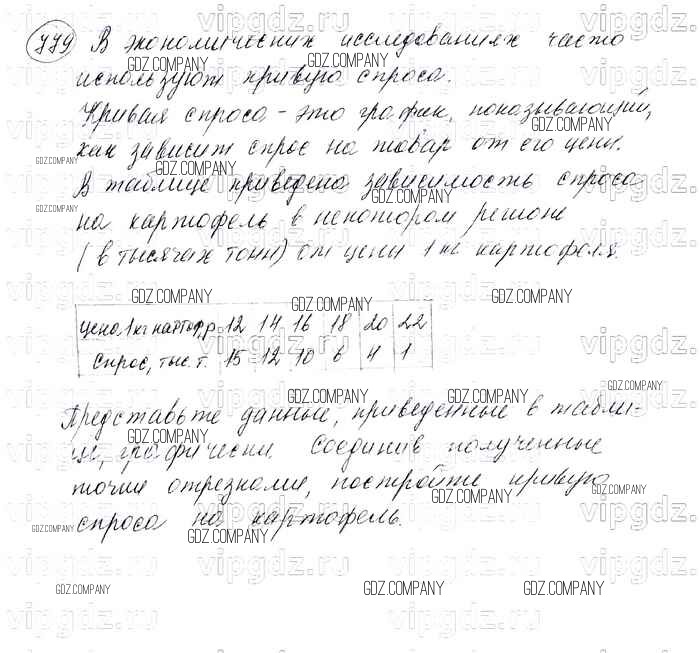 779 В экономических исследованиях часто
используют кривую спроса.
Кривая спроса - это график, показывающий,
как зависит спрос на товар от его цены.
В таблице приведена зависимость спроса
на картофель в некотором регионе
(в тысячах тонн) от цены 1 кг картофеля.
Цена 1 кг картоф, р. 12 14 16 18 20 22
Спрос, тыс. т. 15 12 10 6 4 1
Представьте данные, приведенные в табли-
це, графически. Соединив полученные
точки отрезками, постройте кривую
спроса на картофель.
GDZ.COMPANY
vipgdz.ru